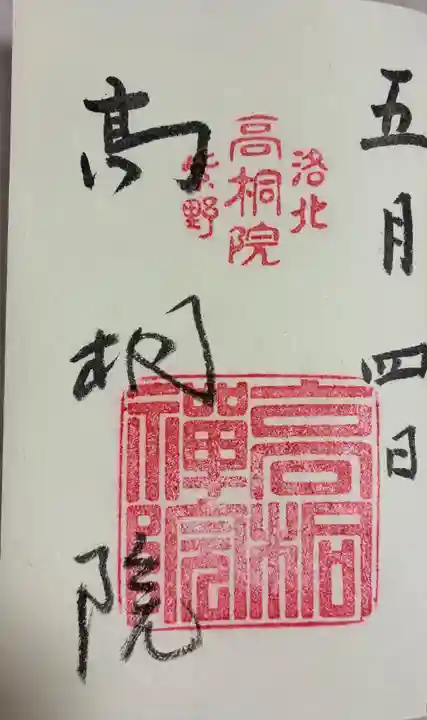 五月四日
洛北
高桐院
紫野
高桐院
高桐禅院